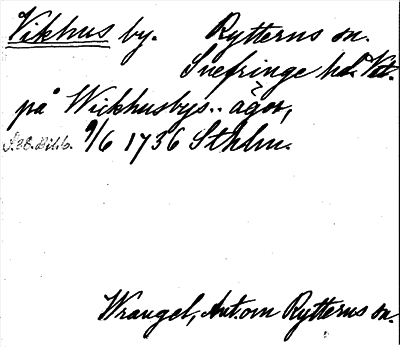 Vikhus by. Rytterns sn.
Snefringe hd. Vstl.
på Wickhusbys.. ägor,
S.38. Bil.6. 9/6 1736 Sthlm.
Wrangel, Ant. om Rytterns sn.